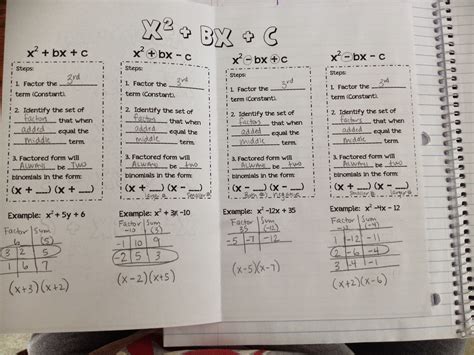 X² + BX + C
x² + bx + c
Steps:
1. Factor the 3rd
term (Constant).
2. Identify the set of
factors that when
added equal the
middle term.
3. Factored form will
ALWAYS be TWO
binomials in the form:
(x + __)(x + __)
Example: x² + 5y + 6
Factor | Sum
6 | (5)
3 2 | 5
1 6 | 7
(x+3)(x+2)
x² + bx - c
Steps:
1. Factor the 3rd
term (Constant).
2. Identify the set of
factors that when
added equal the
middle term.
3. Factored form will
ALWAYS be two
binomials in the form:
(x + __)(x - __)
Example: x² + 3x -10
Factor | Sum
-10 | (3)
-1 10 | 9
-2 5 | 3
(x-2)(x+5)
x² - bx + c
Steps:
1. Factor the 3rd
term (Constant).
2. Identify the set of
factors that when
added equal the
middle term.
3. Factored form will
ALWAYS be two
binomials in the form:
(x - __)(x - __)
Example: x² -12x + 35
Factor | Sum
35 | (-12)
-5 -7 | -12
(x-5)(x-7)
x² - bx - c
Steps:
1. Factor the 3rd
term (Constant).
2. Identify the set of
factors that when
added equal the
middle term.
3. Factored form will
ALWAYS be two
binomials in the form:
(x + __)(x - __)
Example: x² -4x - 12
Factor | Sum
-12 | (-4)
1 -12 | -11
2 -6 | -4
3 -4 | -1
(x+2)(x-6)